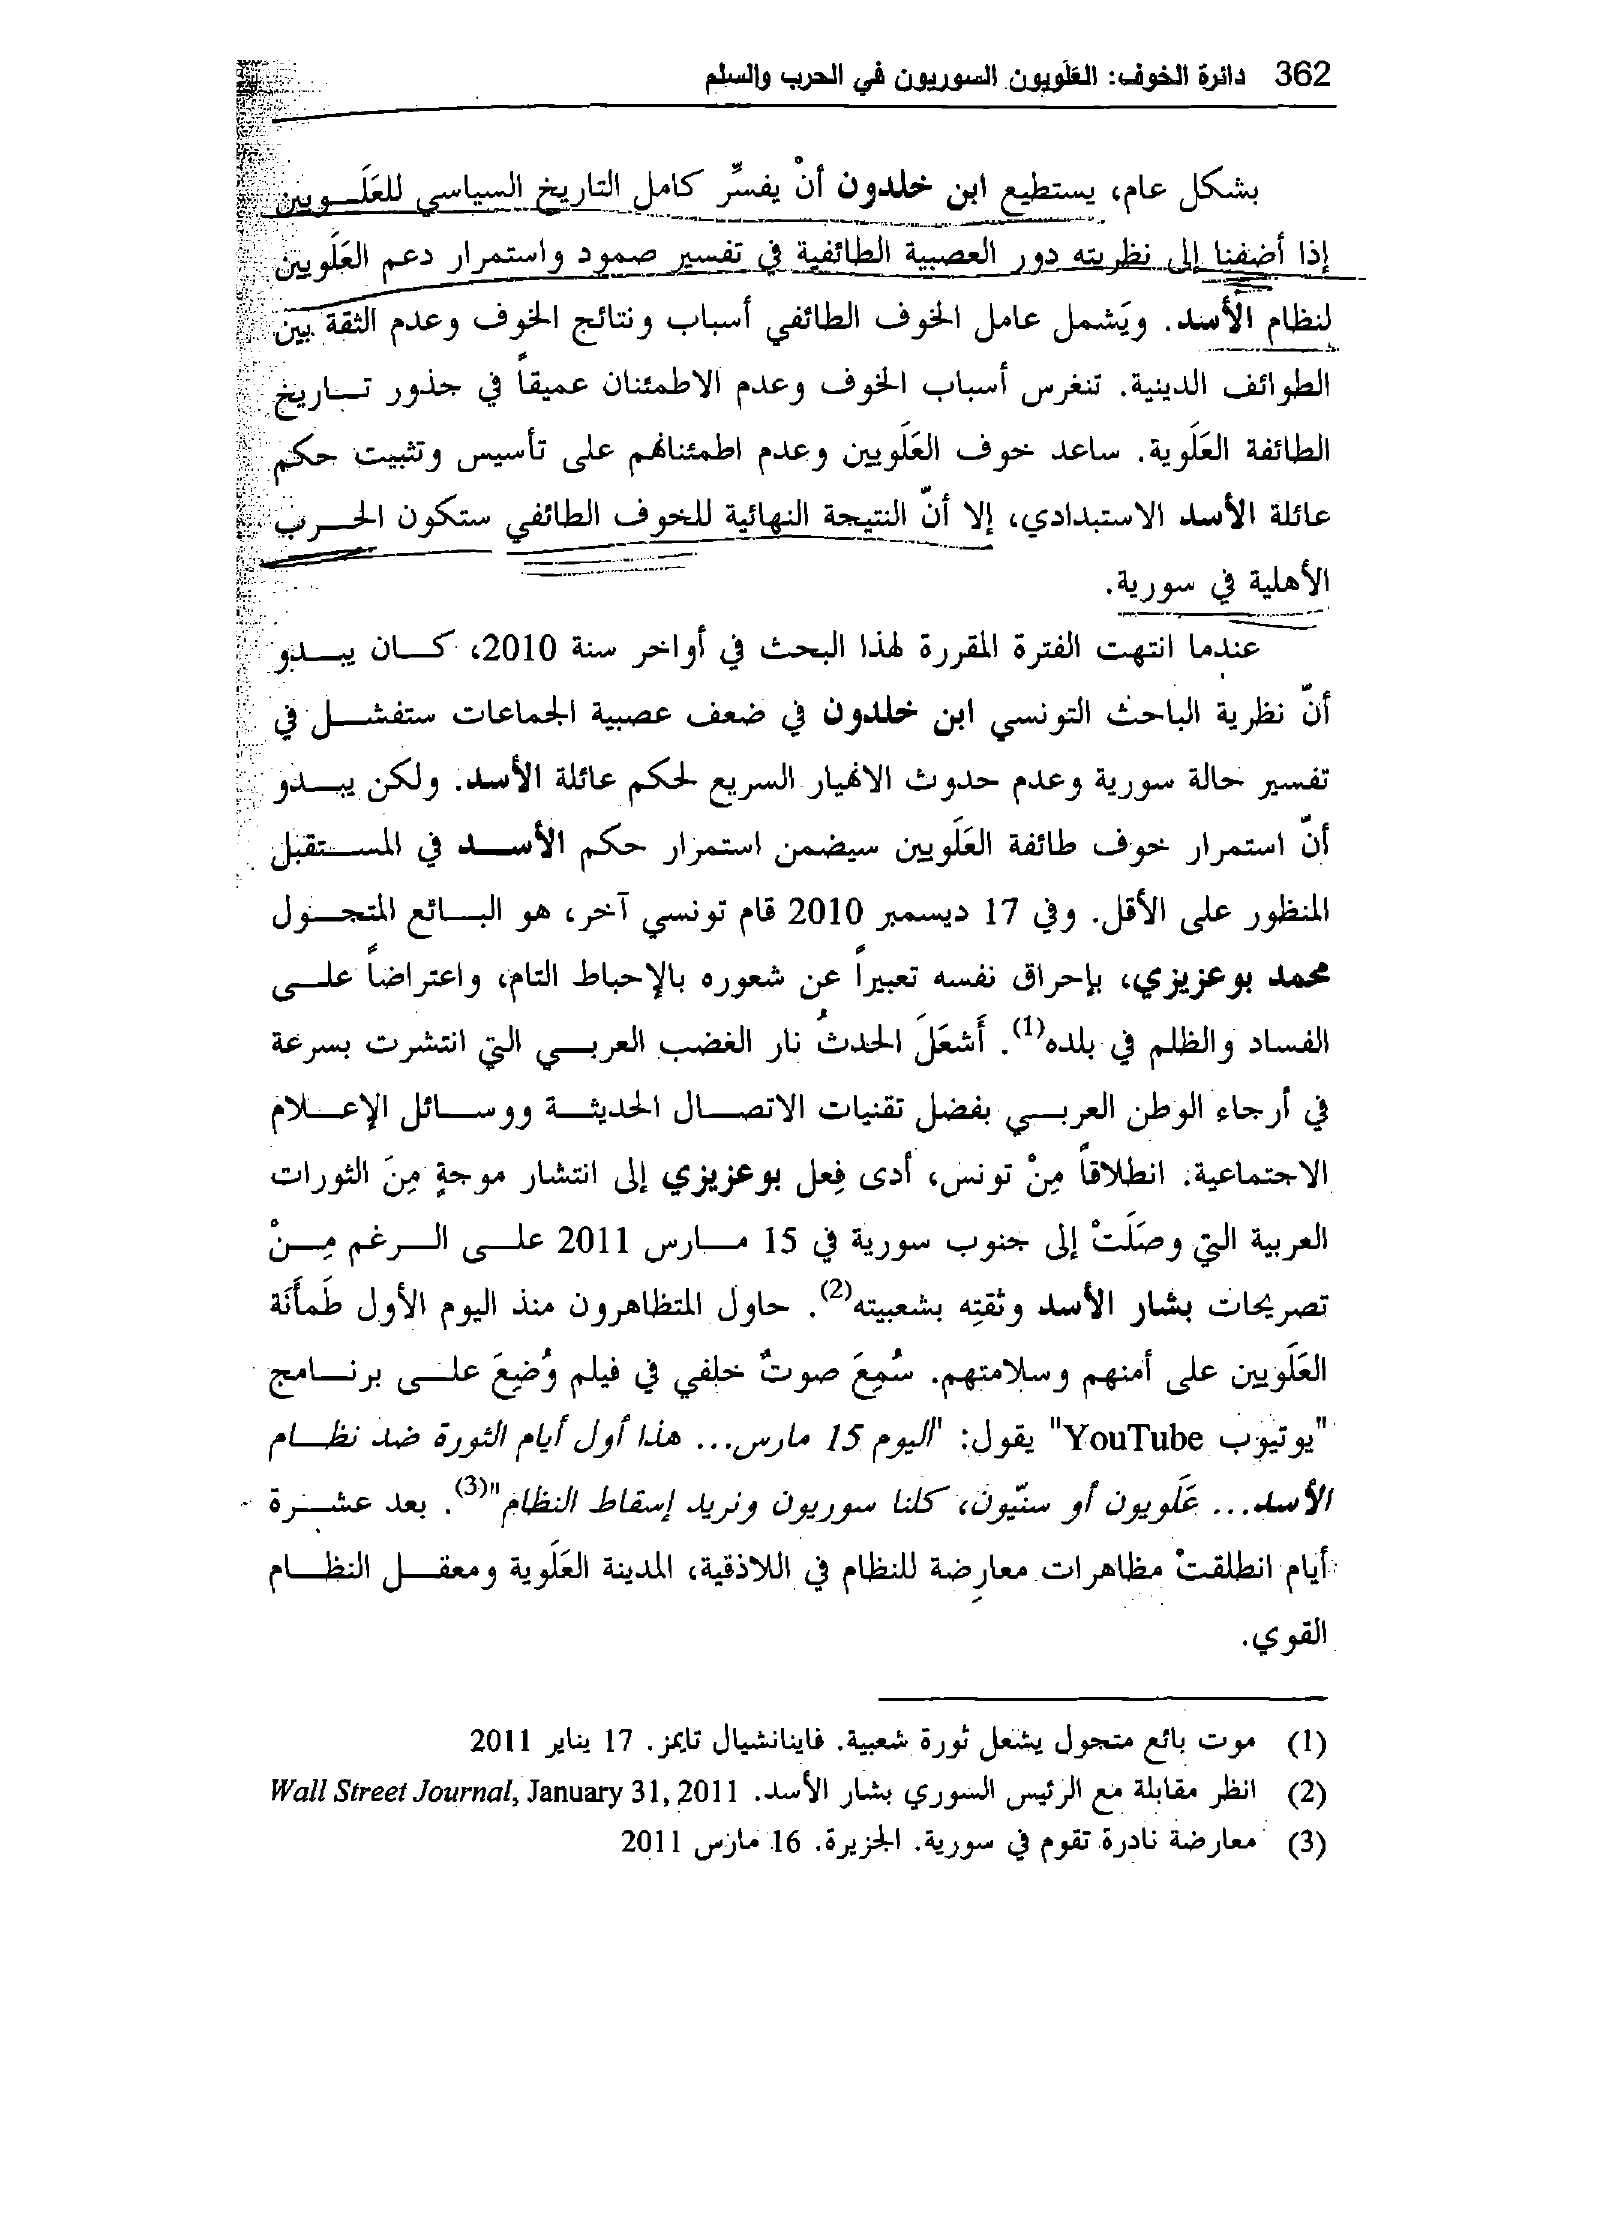 362 دائرة الخوف: العَلَويون السوريون في الحرب والسلم
بشكل عام، يستطيع ابن خلدون أنْ يفسِّر كامل التاريخ السياسي للعَلَويين
إذا أضفنا إلى نظريته دور العصبية الطائفية في تفسير صمود واستمرار دعم العَلَويين
لنظام الأسد. ويَشمل عامل الخوف الطائفي أسباب ونتائج الخوف وعدم الثقة بين
الطوائف الدينية. تنغرس أسباب الخوف وعدم الاطمئنان عميقاً في جذور تاريخ
الطائفة العَلَوية. ساعد خوف العَلَويين وعدم اطمئنانهم على تأسيس وتثبيت حكم
عائلة الأسد الاستبدادي، إلا أنّ النتيجة النهائية للخوف الطائفي ستكون الحرب
الأهلية في سورية.
عندما انتهت الفترة المقررة لهذا البحث في أواخر سنة 2010، كان يبدو
أنّ نظرية الباحث التونسي ابن خلدون في ضعف عصبية الجماعات ستفشل في
تفسير حالة سورية وعدم حدوث الانهيار السريع لحكم عائلة الأسد. ولكن يبدو
أنّ استمرار خوف طائفة العَلَويين سيضمن استمرار حكم الأسد في المستقبل
المنظور على الأقل. وفي 17 ديسمبر 2010 قام تونسي آخر، هو البائع المتجول
محمد بوعزيزي، بإحراق نفسه تعبيراً عن شعوره بالإحباط التام، واعتراضاً على
الفساد والظلم في بلده(1). أَشعَلَ الحدثُ نار الغضب العربي التي انتشرت بسرعة
في أرجاء الوطن العربي بفضل تقنيات الاتصال الحديثة ووسائل الإعلام
الاجتماعية. انطلاقاً مِنْ تونس، أدى فِعل بوعزيزي إلى انتشار موجةٍ مِنَ الثورات
العربية التي وصَلَتْ إلى جنوب سورية في 15 مارس 2011 على الرغم مِنْ
تصريحات بشار الأسد وثقتِه بشعبيته(2). حاول المتظاهرون منذ اليوم الأول طَمأنَة
العَلَويين على أمنهم وسلامتهم. سُمِعَ صوتٌ خلفي في فيلم وُضِعَ على برنامج
"يوتيوب YouTube" يقول: "اليوم 15 مارس... هذا أول أيام الثورة ضد نظام
الأسد... عَلَويون أو سنّيون، كلنا سوريون ونريد إسقاط النظام"(3). بعد عشرة
أيام انطلقتْ مظاهرات معارِضة للنظام في اللاذقية، المدينة العَلَوية ومعقل النظام
القوي.
(1) موت بائع متجول يشعل ثورة شعبية. فاينانشيال تايمز. 17 يناير 2011
(2) انظر مقابلة مع الرئيس السوري بشار الأسد. Wall Street Journal, January 31, 2011
(3) معارضة نادرة تقوم في سورية. الجزيرة. 16 مارس 2011